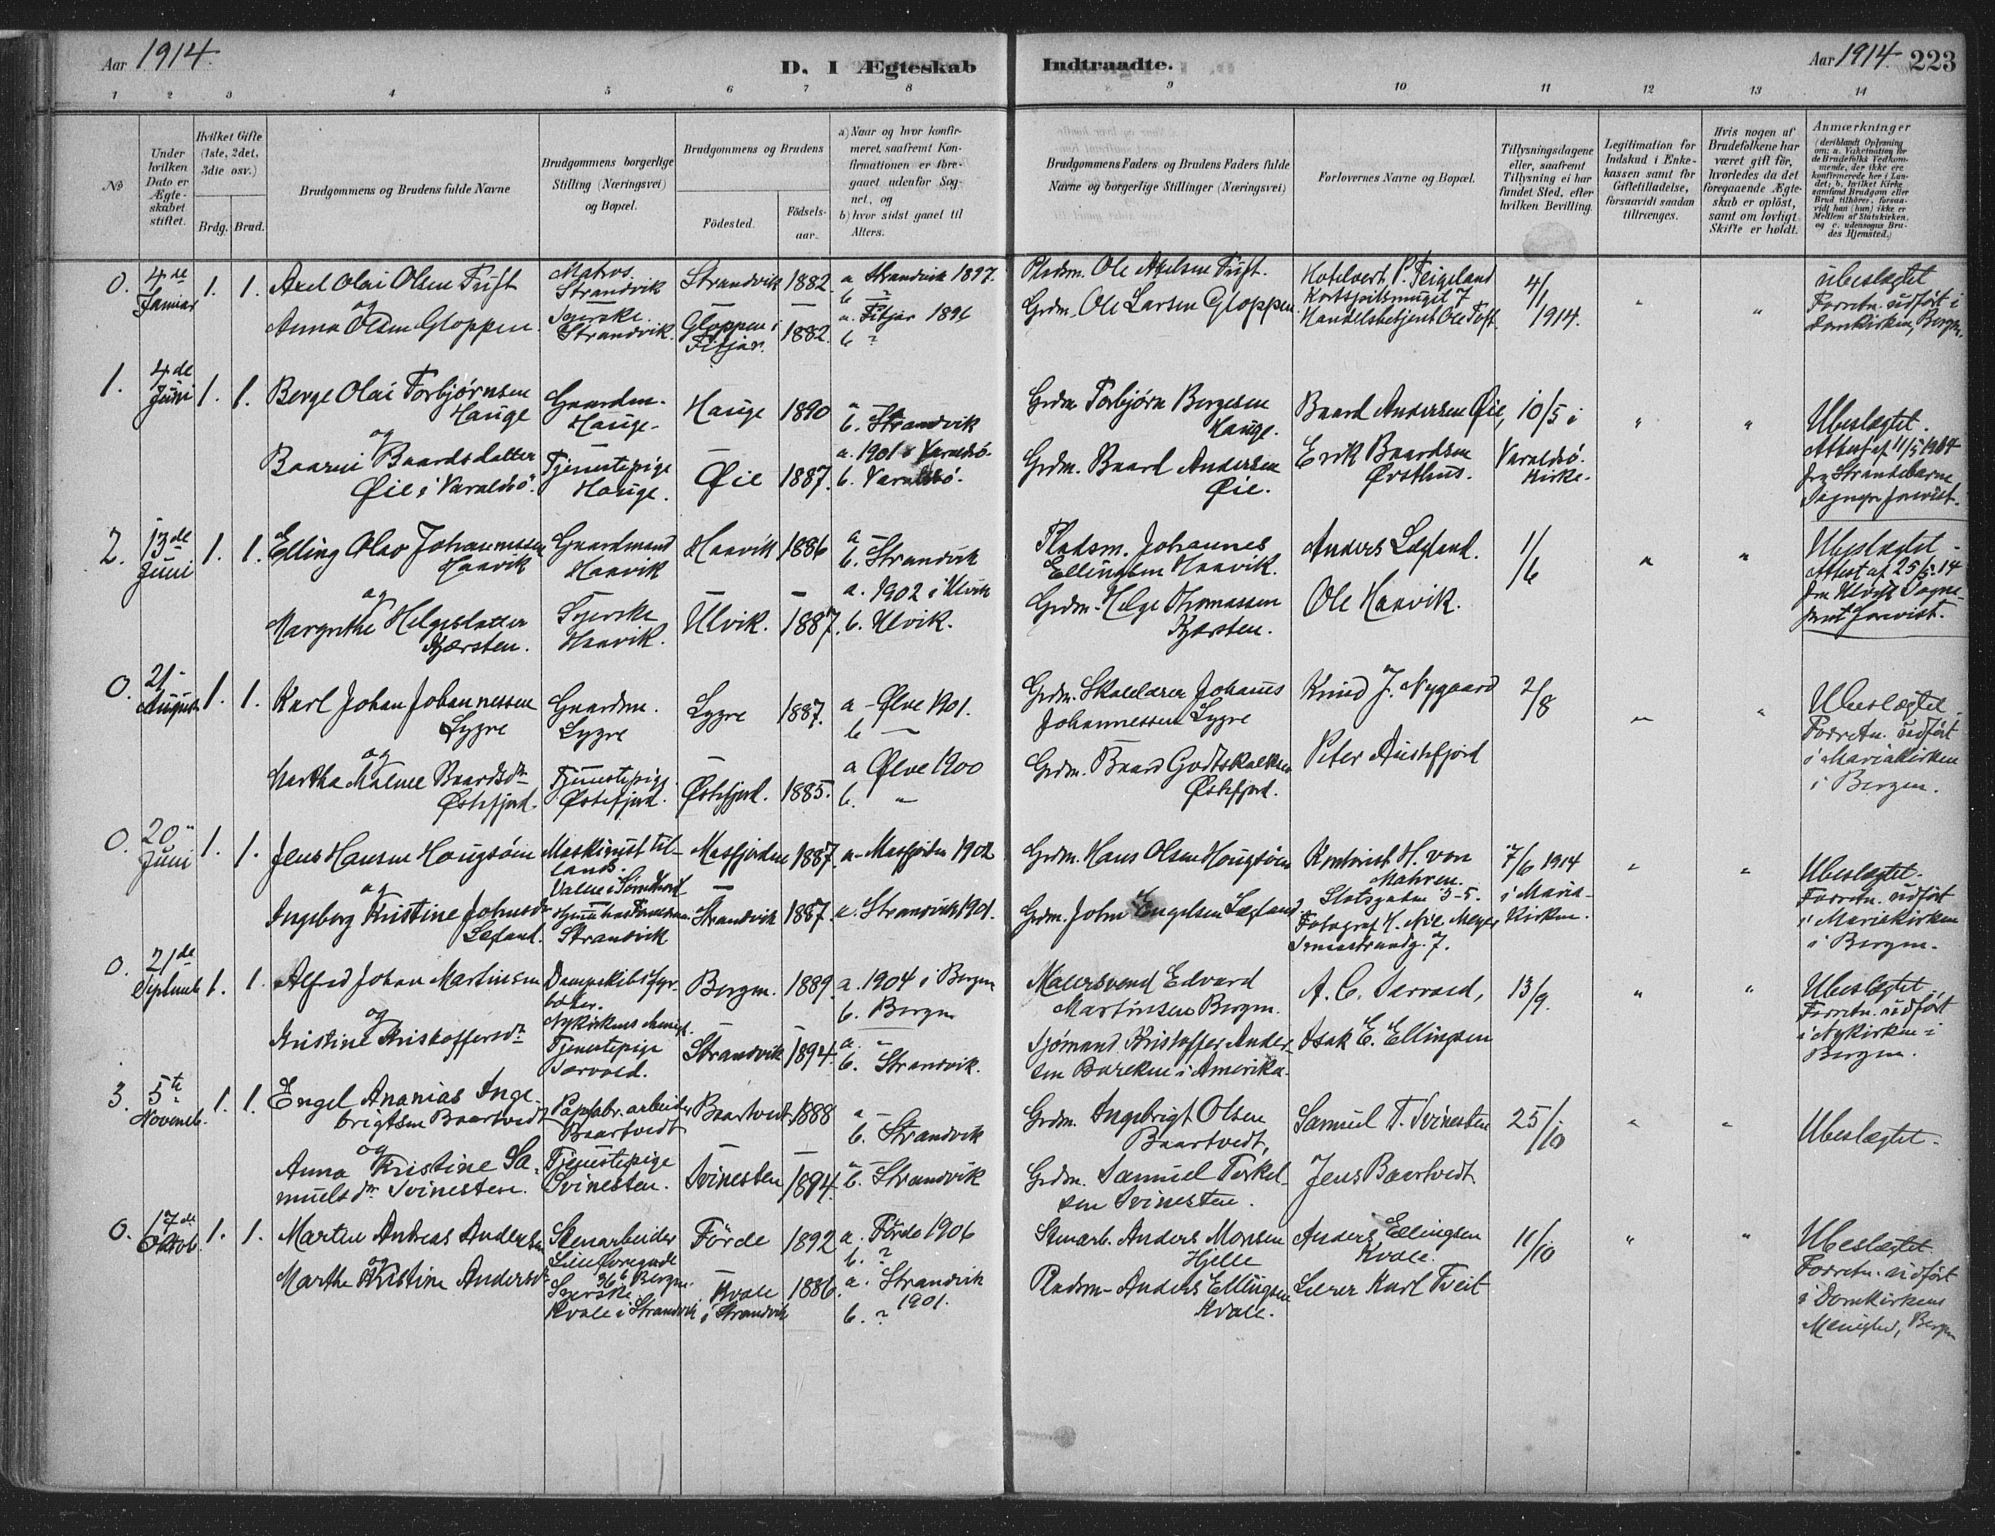 Aar 1914.
D. I Ægteskab Indtraadte.
Aar 1914 223
1 2 3 4 5 6 7 8 9 10 11 12 13 14
No
Under hvilken Dato er Ægteskabet stiftet.
Hvilket Gifte (1ste, 2det, 3die osv.)
Brdg. Brud.
Brudgommens og Brudens fulde Navne
Brudgommens borgerlige Stilling (Næringsvei) og Bopæl.
Brudgommens og Brudens
Födested.
Födsels-aar.
a) Naar og hvor konfirmeret, saafremt Konfirmationen er foregaaet udenfor Sognet, og
b) hvor sidst gaaet til Alters.
Brudgommens Faders og Brudens Faders fulde Navne og borgerlige Stillinger (Næringsvei)
Forlovernes Navne og Bopæl.
Tillysningsdagene eller, saafremt Tillysning ei har fundet Sted, efter hvilken Bevilling.
Legitimation for Indskud i Enkekassen samt for Giftetilladelse, forsaavidt saadan tiltrænges.
Hvis nogen af Brudefolkene har været gift før, hvorledes da det foregaaende Ægteskab er opløst, samt om lovligt Skifte er holdt.
Anmærkninger
0. 4de Januar 1. 1. Axel Olai Olsen Tuft
Matros Strandvik
Strandvik 1882. a Strandvik 1897. b ?
Pladsm. Ole Axelsen Tuft.
Hotelvert P. Teigeland
4/1 1914.
Ubeslægtet Forretn. udført i Domkirken, Bergen.
og
Anna Olsen Gloppen.
Syerske. Strandvik.
Gloppen i Fitjar. 1882. a. Fitjar 1896 b ?
Grdm. Ole Larsen Gloppen
Handelsbetjent Ole Tuft.
1. 4de Juni 1. 1. Berge Olai Torbjørnsen Hauge
Gaardm. Hauge.
Hauge 1890 a — b. Strandvik
Grdm. Torbjørn Bergesen Hauge.
Baard Andersen Øie,
10/5 i Varaldsö. Kirke.
Ubeslægtet. Attest af 11/5 1914 fra Strandebarm
og
Baarni Baardsdatter Øie i Varaldsö.
Tjenestepige Hauge.
Øie 1887. a. 1901 i Varaldsö. b. Varaldsö.
Grdm. Baard Andersen Øie.
Erik Baardsen Ørsthus.
2. 13de Juni 1. 1. Elling Olav Johannessen Haavik
Gaardmand Haavik
Haavik 1886 a — b. Strandvik
Pladsm. Johannes Ellingsen Haavik.
Anders Lægland.
1/6
Ubeslægtet. Attest af 25/5 14 fra Ulvik
og
Margrethe Helgesdatter Kjærsten.
Syerske Haavik.
Ulvik. 1887. a. 1902 i Ulvik b. Ulvik.
Grdm. Helge Thomassen Kjærsten.
Ole Haavik.
0. 21 August 1. 1. Karl Johan Johannessen Lygre
Gaardm. Lygre
Lygre 1887. a — Ølve 1901. b —
Grdm. Skolelærer Johannes Johannessen Lygre
Knud J. Nygaard
2/8
Ubeslægtet. Forretn. udført i Mariakirken i Bergen.
og
Martha Malene Baardsdr. Østefjord.
Tjenestepige Østefjord.
Østefjord. 1885. a Ølve 1900 b. "
Grdm. Baard Godtskalksen Østefjord.
Peter Austefjord
0. 20 Juni 1. 1. Jens Hansen Hougsöen
Maskinist
Masfjorden 1887. a — Masfjorden 1902
Grdm. Hans Olsen Hougsöen
Kontorist H. von Mahren. Slotsgaten 3-5.
7/6 1914 i Maria-Kirken.
Ubeslægtet. Forretn. udført i Mariakirken i Bergen.
og
Ingeborg Kristine Johnsdr. Lægland.
Strandvik
Strandvik 1887. a. Strandvik 1901.
Grdm. John Engelsen Lægland
Fotograf H. Meyer
0. 21de Septemb 1. 1. Alfred Johan Martinsen
Dampskibsfyrbøter.
Bergen. 1889. a. 1904 i Bergen b. Bergen
Malersvend Edvard Martinsen Bergen.
A. C. Sævold,
13/9.
Ubeslægtet. Forretn. udført i Nykirken i Bergen.
og
Kristine Kristoffersdr.
Tjenestepige Sævold.
Strandvik 1894. a. — b. Strandvik.
Sjømand Kristoffer Andersen i Amerika.
Isak E. Ellingsen
3. 5te Novemb. 1. 1. Engel Ananias Ingebrigtsen Baartvedt
Papfabr. arbeider Baartvedt
Baartvedt 1888 a — b. Strandvik
Grdm. Ingebrigt Olsen Baartvedt,
Samuel T. Svinesten
25/10
Ubeslægtet.
og
Anna Kristine Samuelsdr. Svinesten.
Tjenestepige Svinesten.
Svinesten 1894. a — b. Strandvik
Grdm. Samuel Torkelsen Svinesten.
Jens Baartvedt
0. 17de Oktob. 1. 1. Martin Andreas Andersen
Stenarbeider
Förde 1892 a. Förde 1906 b. ?
Stenarb. Anders Monsen Hjelle
Anders Ellingsen Kvale.
11/10
Ubeslægtet. Forretn. udført i Domkirkens Menighed, Bergen
og
Marthe Kristine Andersdr.
Syerske. Kvale i Strandvik
Kvale i Strandvik 1886. a. Strandvik 1901. b. ?
Pladsm. Anders Ellingsen Kvale.
Lærer Karl Tveit